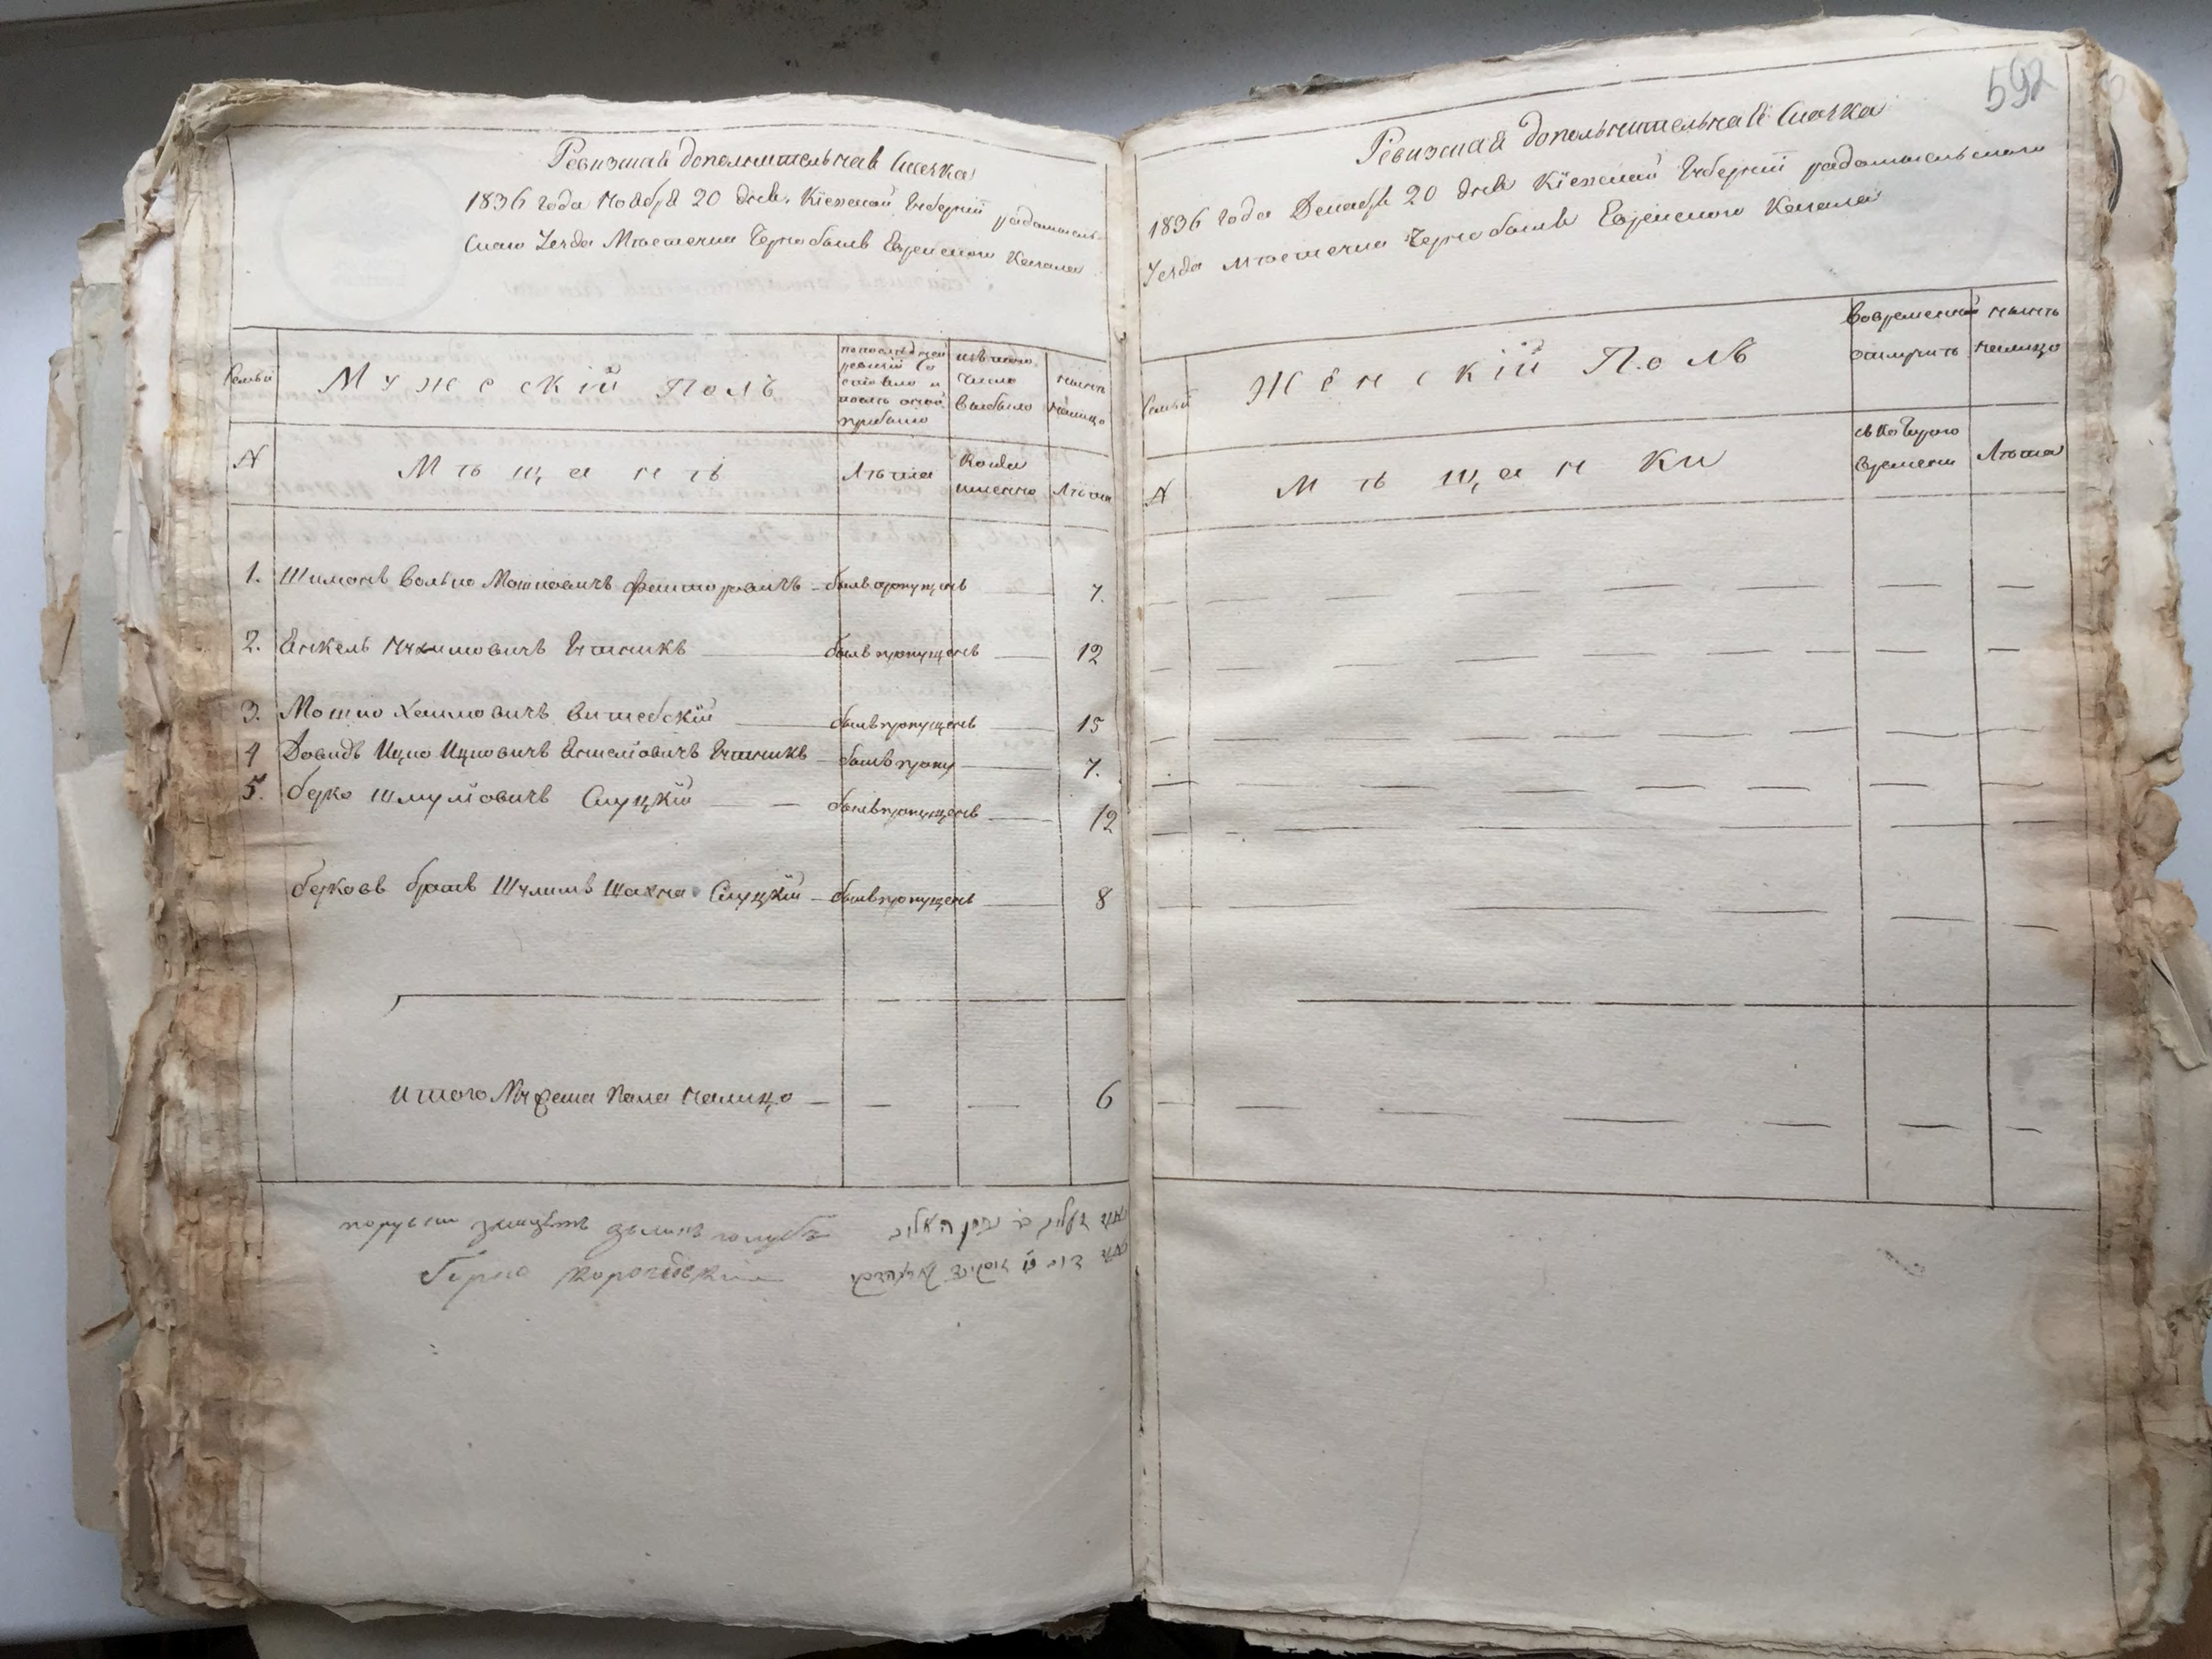 Ревизкая дополнительная Скаска
1836 года Ноября 20 дня, Кіевской Губерніи радомысль-
скаго Уезда Мѣстечка Чернобыля Еврейского Кагала
Семьи
Мужескій Полъ
по последней ревизіи состояло и послѣ оной прибыло
изъ того числа выбыло
нынѣ налицо
N
Мѣщанѣ
Лѣта
Когда именно
Лѣта
1. Шимонъ Волько Мошковичъ Фасторовичъ былъ пропущенъ 7.
2. Енкель Нухимовичъ Гутникъ былъ пропущенъ 12
3. Мошко Хаимовичъ Витебскій былъ пропущенъ 15
4 Довидъ Ицко Ицковичъ Енкелiовичъ Гутникъ былъ пропу 7.
5. Берко Шмулiовичъ Слуцкій былъ пропущенъ 12
Берковъ братъ Шулимъ Шахна Слуцкій былъ пропущенъ 8
итого Мужеска пола налицо 6
Берко
592
Ревизкая дополнительная Скаска
1836 года Декабря 20 дня Кіевской Губерніи радомысльского
Уезда мѣстечка Чернобыля Еврейского Кагала
Семьи
Женскій Полъ
Вовременной отлучкѣ
нынѣ налицо
N
Мѣщанки
съ котораго времени
Лѣта